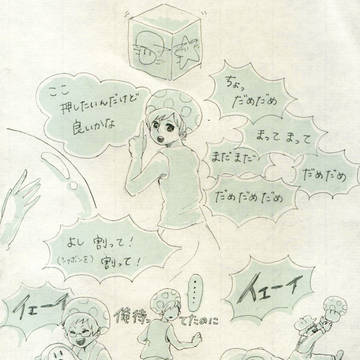 ここ
押したいんだけど
良いかな
ちょっ
だめだめ
まって まって
まだまだっ
だめだめ
だめだめだめ
よし 割って!
(シャボンを) 割って!
イェーイ
俺待っ
てたのに
......
イェーイ